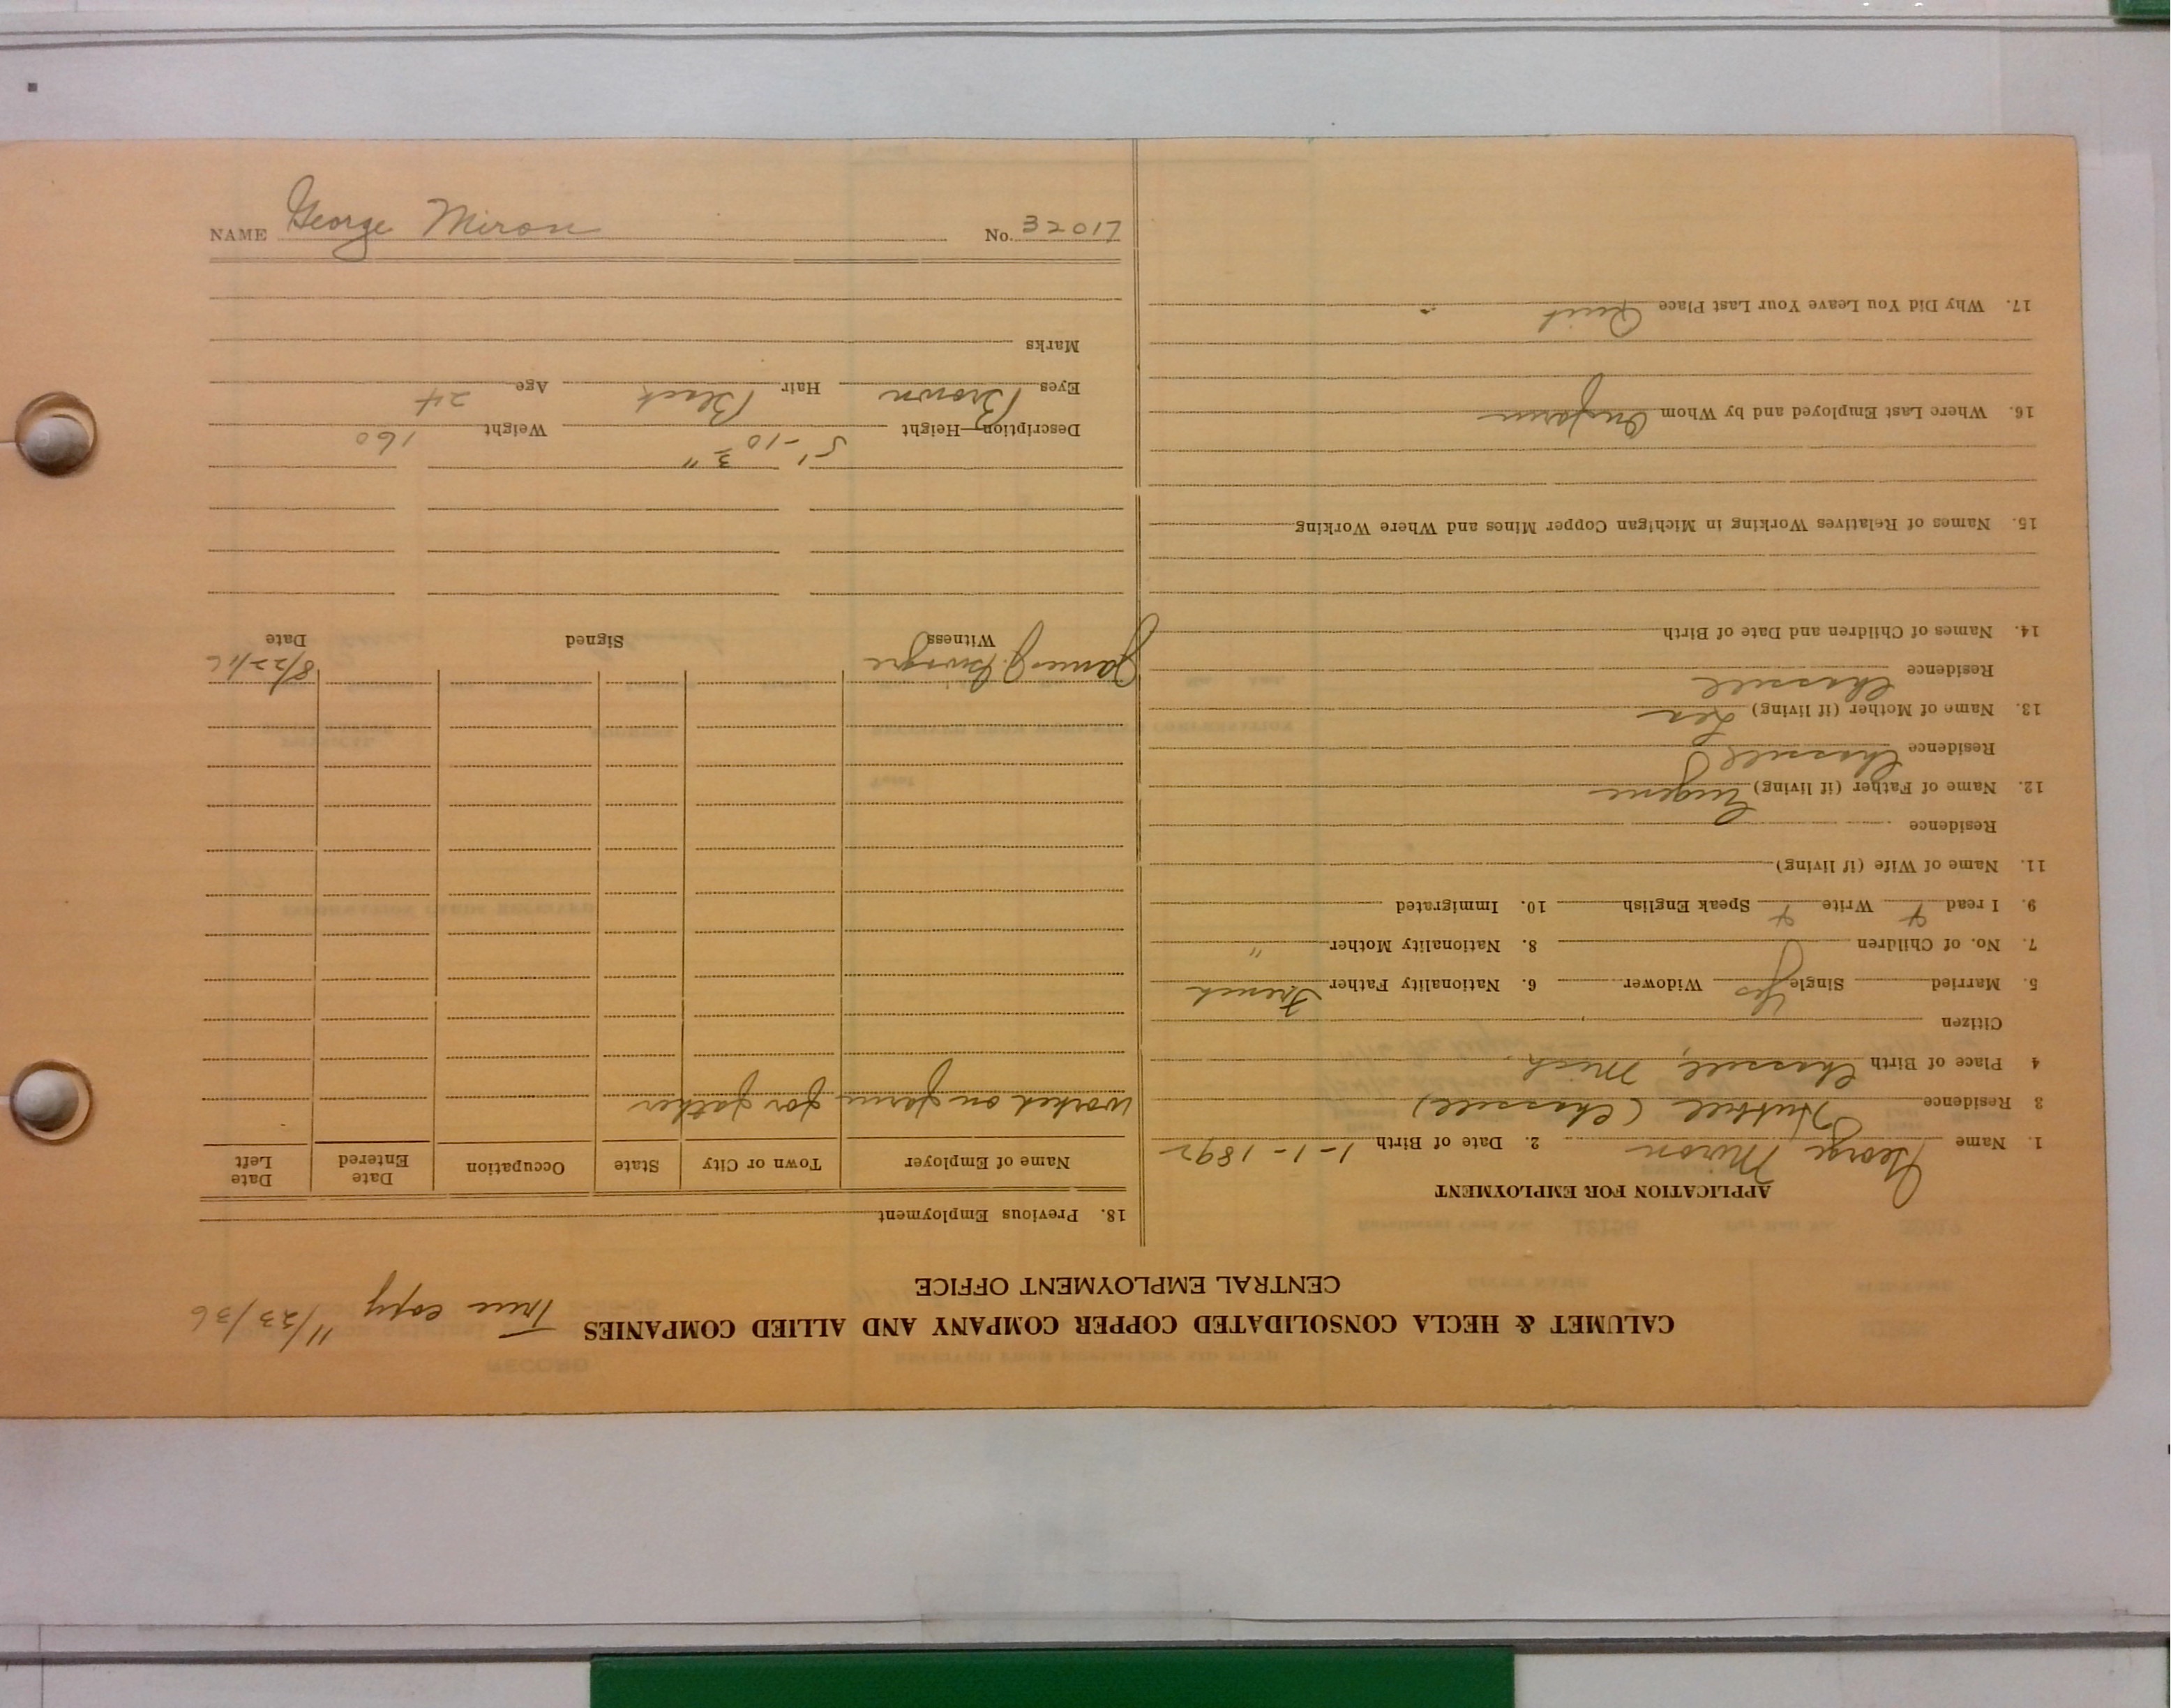 CALUMET & HECLA CONSOLIDATED COPPER COMPANY AND ALLIED COMPANIES
True copy 11/23/36
CENTRAL EMPLOYMENT OFFICE
APPLICATION FOR EMPLOYMENT
1. Name George Miron 2. Date of Birth 1-1-1892
3 Residence (Chassell)
4 Place of Birth Chassell, Mich
Citizen
5. Married Single Yes Widower 6. Nationality Father French
7. No. of Children 8. Nationality Mother "
9. I read Write Speak English 10. Immigrated
11. Name of Wife (if living)
Residence
12. Name of Father (if living) Eugene
Residence Chassell
13. Name of Mother (if living) Lea
Residence Chassell
14. Names of Children and Date of Birth
15. Names of Relatives Working in Michigan Copper Mines and Where Working
16. Where Last Employed and by Whom On farm
17. Why Did You Leave Your Last Place Quit
18. Previous Employment
Name of Employer Town or City State Occupation Date Entered Date Left
worked on farm for father
James J. 8/22/16
Witness Signed Date
Description—Height 5'-10 3" Weight 160
Eyes Brown Hair Black Age 24
Marks
NAME George Miron No. 32017